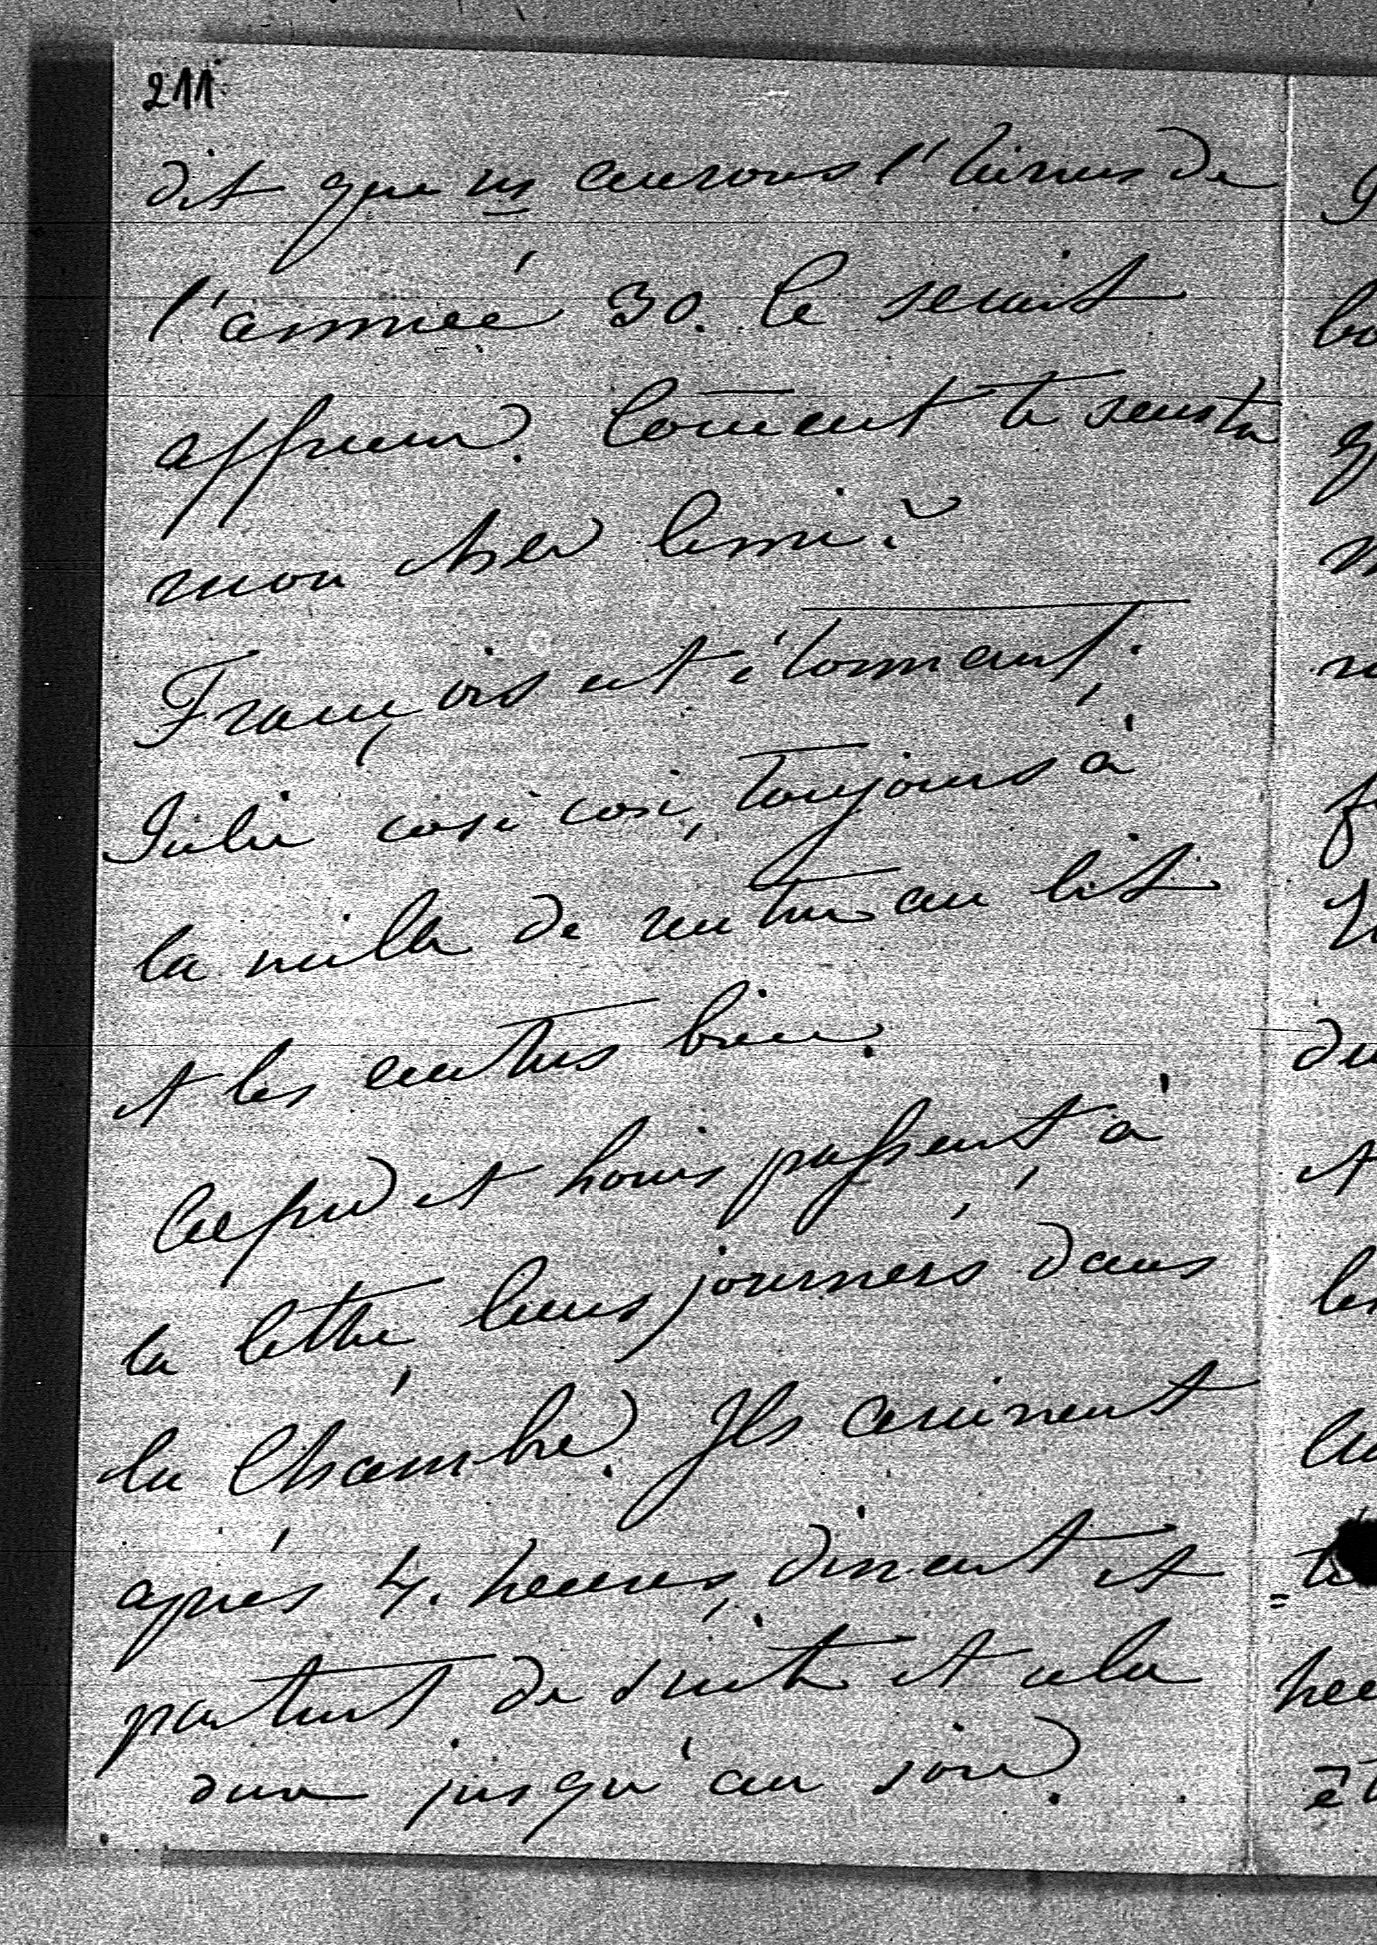 211.
dit que ns aurons l'hiver de
l'année 30. Ce serait
affreux. Coment te sens tu
mon cher
François est étonnant.
Julie cosi cosi, toujours à
la veille de rentrer au lit
et les autres bien.
et Louis passent à
la lettre, leurs journées dans
la Chambre. Ils arrivent
après 4. heures, dinent et
partent de suite et cela
dure jusqu'au soir.